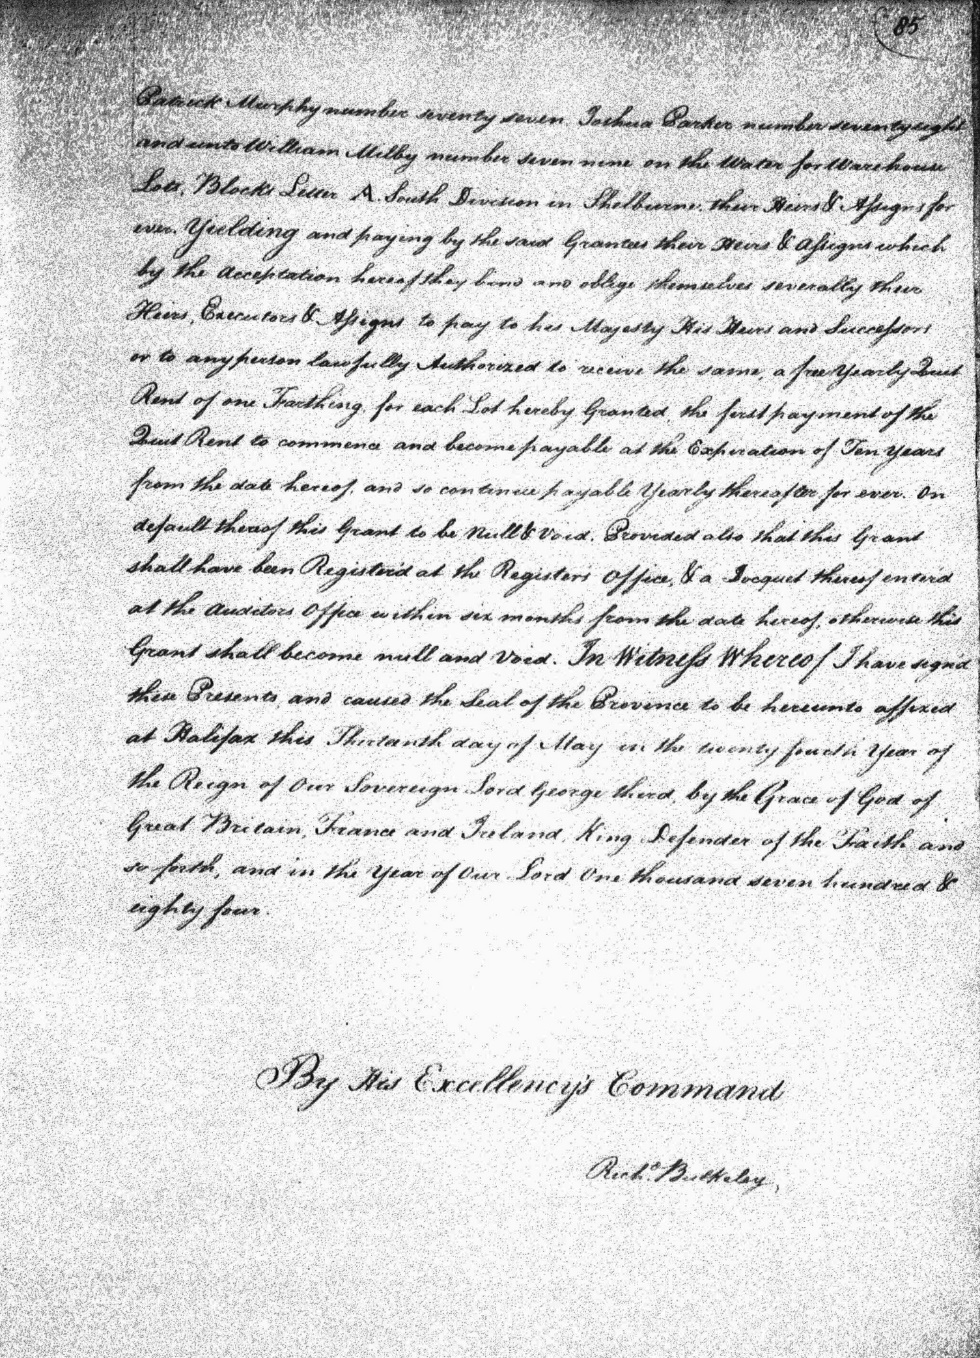 85
Patrick Murphy number seventy seven. Joshua Parker number seventy eight
and unto William Milby number seven nine on the Water for Warehouse
Lots, Blocks Letter A. South Division in Shelburne. their Heirs & Assigns for
ever. Yielding and paying by the said Grantees their Heirs & Assigns which
by the Acceptation hereof they bind and oblige themselves severally their
Heirs, Executors & Assigns to pay to his Majesty His Heirs and Successors
or to any person lawfully Authorized to receive the same, a free Yearly Quit
Rent of one Farthing, for each Lot hereby Granted, the first payment of the
Quit Rent to commence and become payable at the Expiration of Ten Years
from the date hereof, and so continue payable Yearly thereafter for ever. On
default thereof this Grant to be Null & Void. Provided also that this Grant
shall have been Register'd at the Register's Office, & a Docquet thereof enter'd
at the Auditors Office within six months from the date hereof, otherwise this
Grant shall become null and Void. In Witness Whereof I have sign'd
these Presents, and caused the Seal of the Province to be hereunto affixed
at Halifax this Thirteenth day of May in the twenty fourth Year of
the Reign of Our Sovereign Lord George third, by the Grace of God of
Great Britain, France and Ireland, King Defender of the Faith and
so forth, and in the Year of Our Lord One thousand seven hundred &
eighty four.
By His Excellency's Command
Richd. Bulkeley